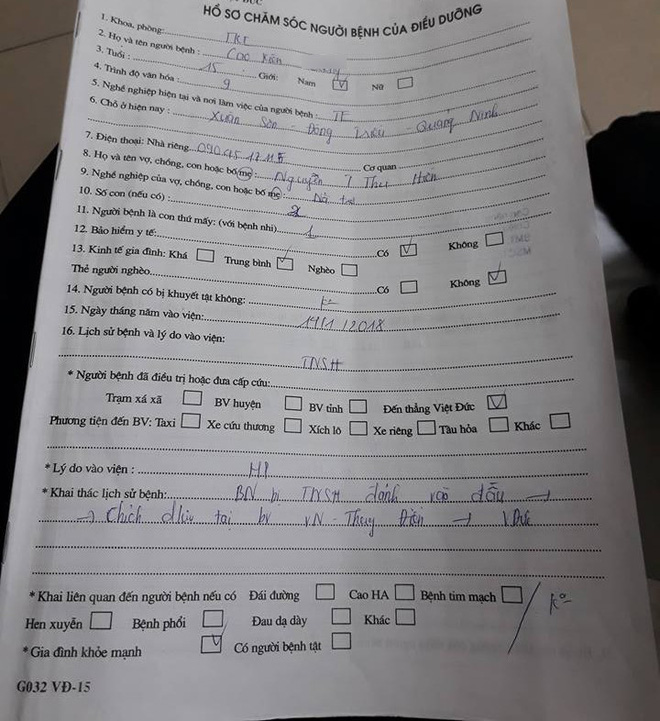 ĐỨC
HỒ SƠ CHĂM SÓC NGƯỜI BỆNH CỦA ĐIỀU DƯỠNG
1. Khoa, phòng:
2. Họ và tên người bệnh : Cao Xuân
3. Tuổi : 15 Giới: Nam ☑ Nữ ☐
4. Trình độ văn hóa : 9
5. Nghề nghiệp hiện tại và nơi làm việc của người bệnh : TE
6. Chỗ ở hiện nay : Xuân Sơn - Đông Triều - Quảng Ninh
7. Điện thoại: Nhà riêng Cơ quan
8. Họ và tên vợ, chồng, con hoặc bố mẹ : Nguyễn T Thu Hiền
9. Nghề nghiệp của vợ, chồng, con hoặc bố mẹ : Nội trợ
10. Số con (nếu có) : 2
11. Người bệnh là con thứ mấy: (với bệnh nhi) 1
12. Bảo hiểm y tế: Có ☑ Không ☐
13. Kinh tế gia đình: Khá ☐ Trung bình ☑ Nghèo ☐
Thẻ người nghèo Có ☐ Không ☑
14. Người bệnh có bị khuyết tật không: k°
15. Ngày tháng năm vào viện: 19/1/2018
16. Lịch sử bệnh và lý do vào viện:
TNSH
* Người bệnh đã điều trị hoặc đưa cấp cứu:
Trạm xá xã ☐ BV huyện ☐ BV tỉnh ☐ Đến thẳng Việt Đức ☑
Phương tiện đến BV: Taxi ☐ Xe cứu thương ☐ Xích lô ☐ Xe riêng ☐ Tàu hỏa ☐ Khác ☐
* Lý do vào viện :
* Khai thác lịch sử bệnh: BN bị TNSH đánh vào đầu →
→ tại bv VN - Thụy Điển → VĐức
* Khai liên quan đến người bệnh nếu có Đái đường ☐ Cao HA ☐ Bệnh tim mạch ☐ k°
Hen xuyễn ☐ Bệnh phổi ☐ Đau dạ dày ☐ Khác ☐
* Gia đình khỏe mạnh ☑ Có người bệnh tật ☐
G032 VĐ-15